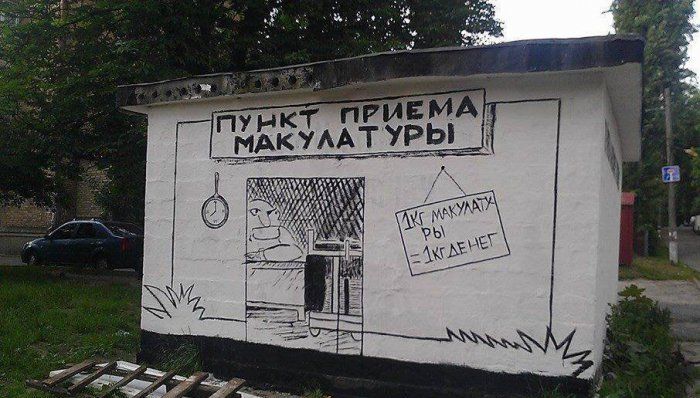 ПУНКТ ПРИЕМА
МАКУЛАТУРЫ
1КГ МАКУЛАТУ
РЫ
=1КГ ДЕНЕГ